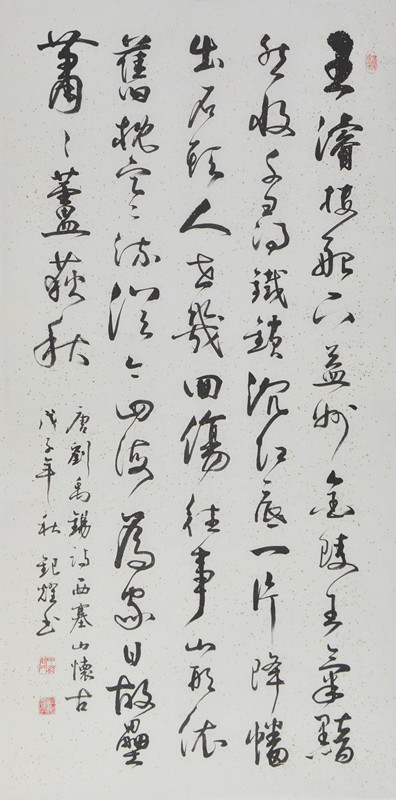 王濬楼船下益州金陵王氣黯
然收千尋鐵鎖沉江底一片降幡
出石頭人世幾回傷往事山形依
舊枕寒流從今四海為家日故壘
蕭々蘆荻秋
唐劉禹錫詩西塞山懷古
戊子年秋 耀书